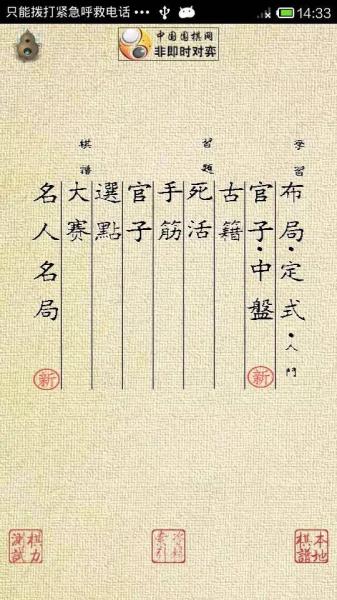 只能拨打紧急呼救电话 ... 14:33
中国围棋网
非即时对弈
學習
布局·定式·入門
官子·中盤
新
習題
古籍
死活
手筋
官子
選點
棋譜
大赛
名人名局
新
本地棋譜
資料索引
棋力測試